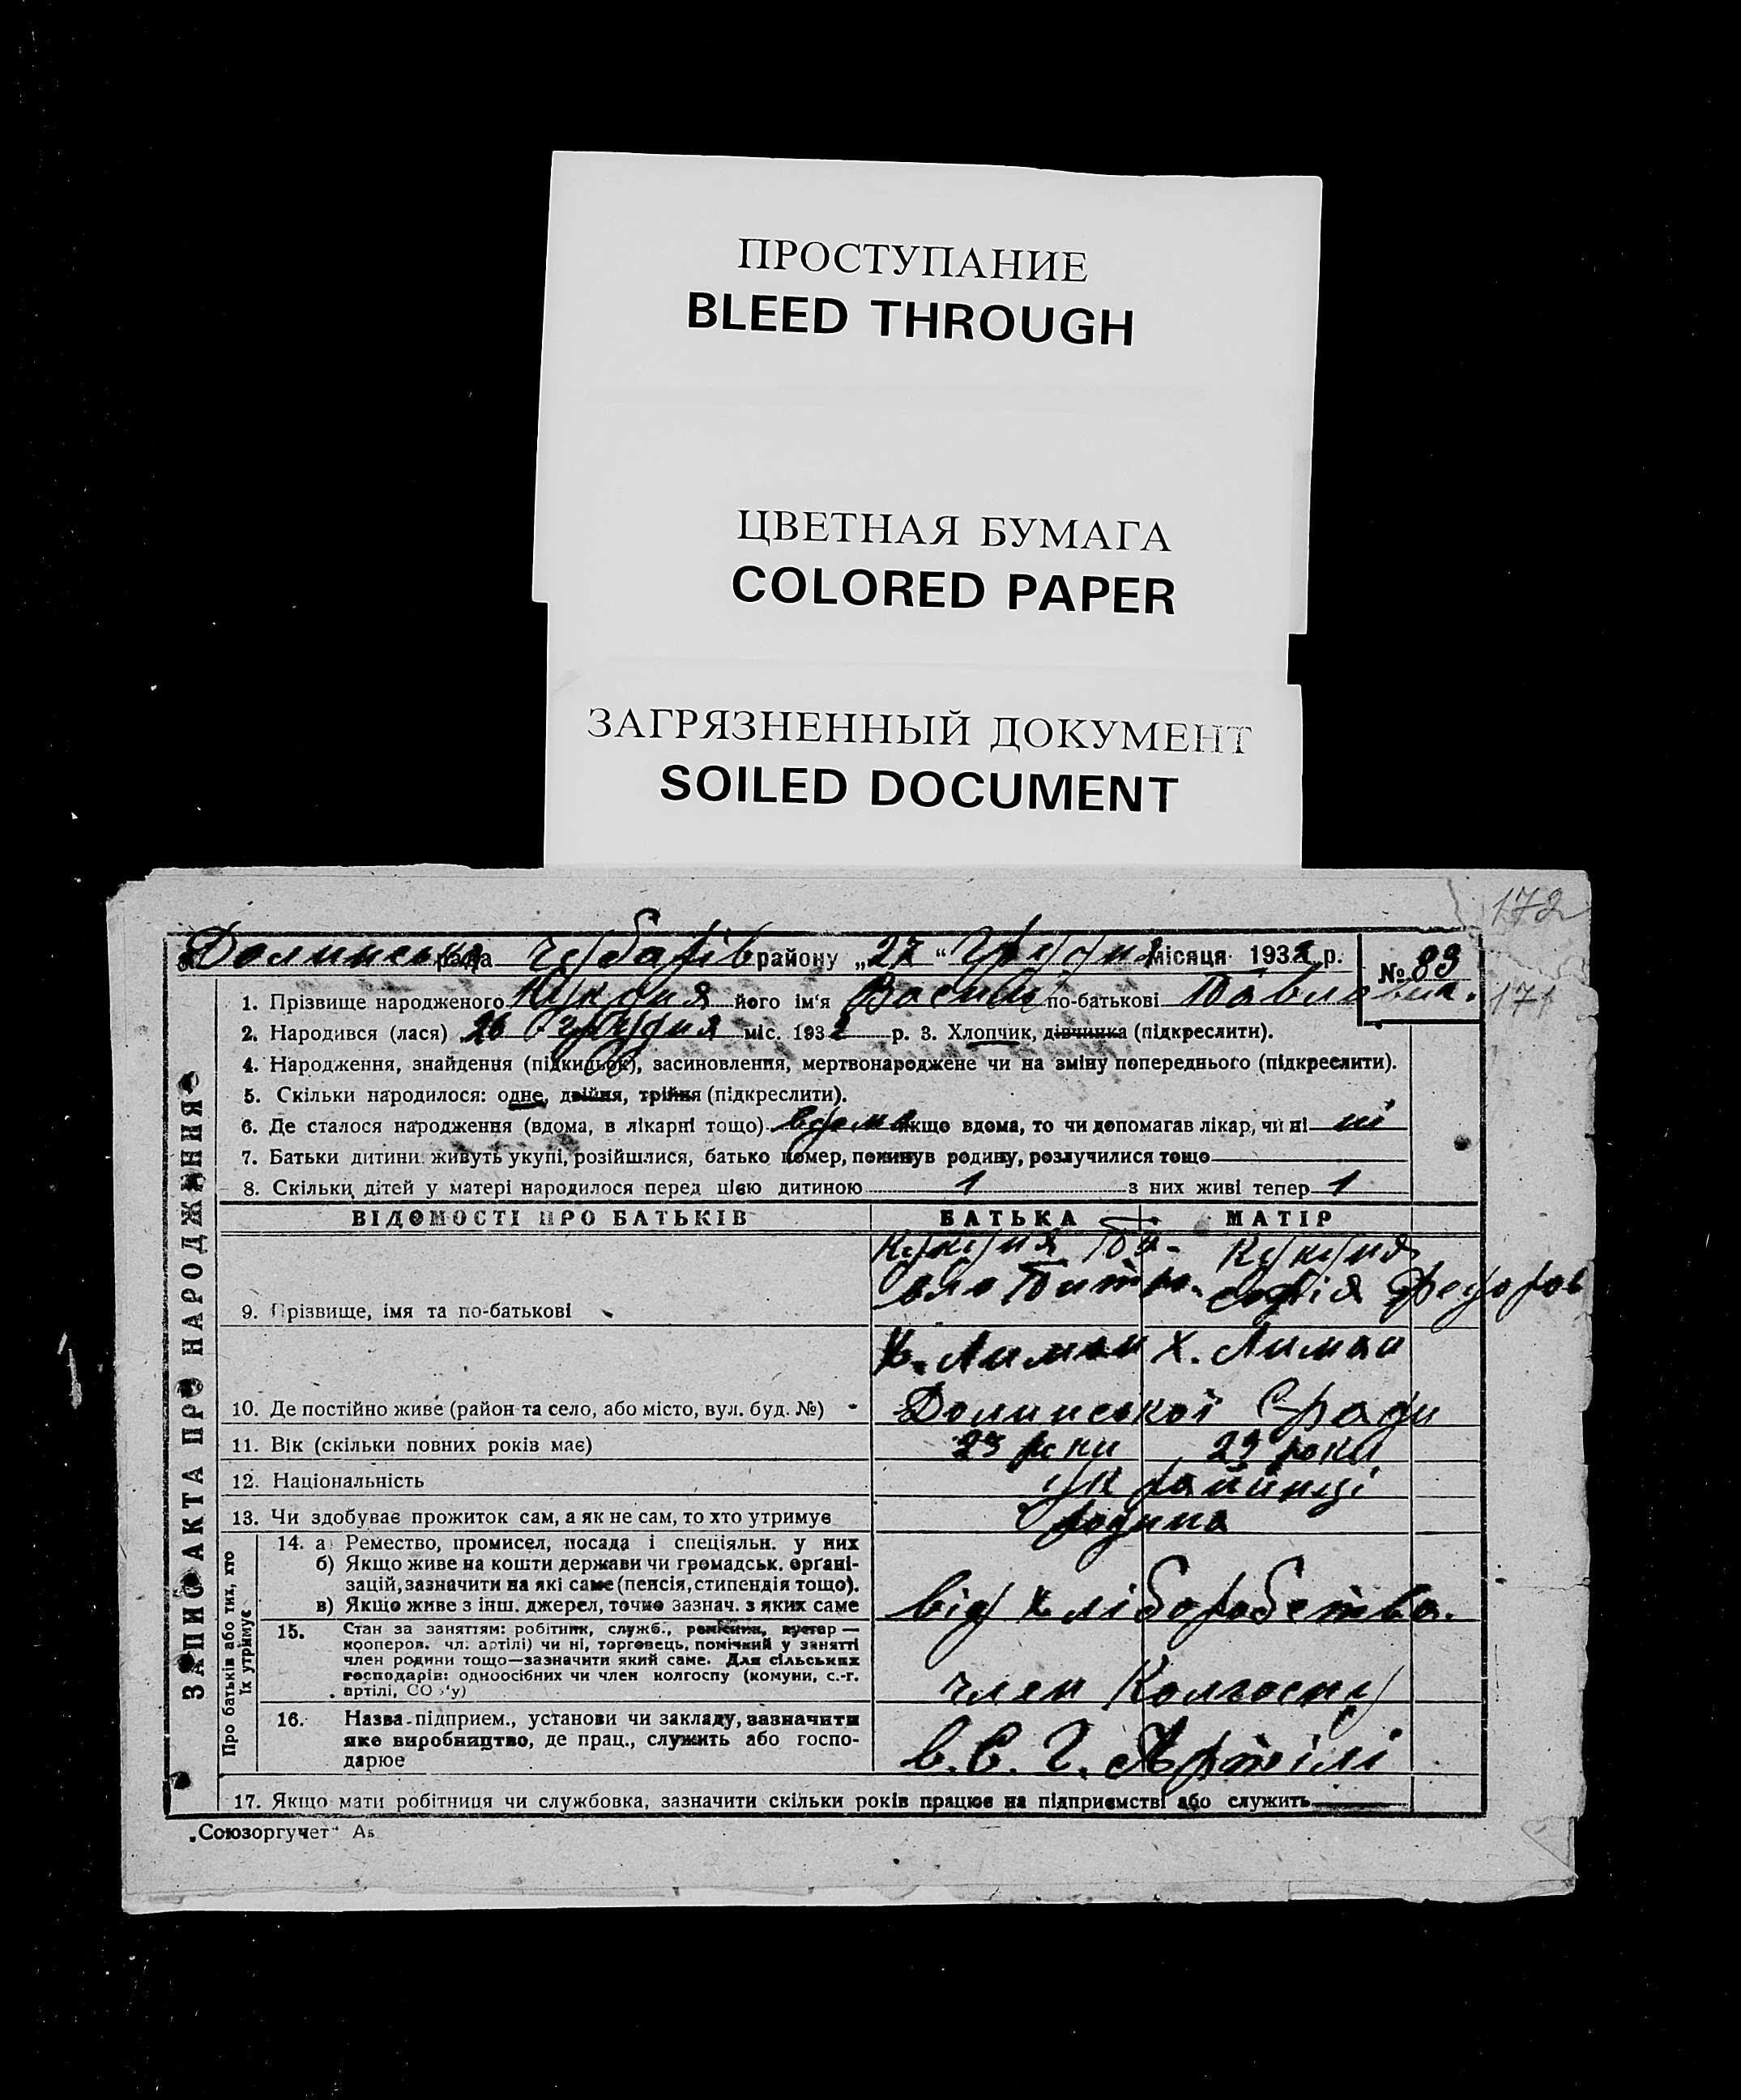 ПРОСТУПАНИЕ
BLEED THROUGH
ЦВЕТНАЯ БУМАГА
COLORED PAPER
ЗАГРЯЗНЕННЫЙ ДОКУМЕНТ
SOILED DOCUMENT
172
Долинська рада Чубарів району „27“ Грудня місяця 1932 р. № 89
171
1. Прізвище народженого Кукуня його ім'я Василь по-батькові Павлович.
2. Народився (лася) 26 Грудня міс. 1932 р. 3. Хлопчик, дівчинка (підкреслити).
4. Народження, знайдення (підкидьок), засиновлення, мертвонароджене чи на зміну попереднього (підкреслити).
5. Скільки народилося: одне, двійня, трійня (підкреслити).
6. Де сталося народження (вдома, в лікарні тощо) вдома якщо вдома, то чи допомагав лікар, чи ні ні
7. Батьки дитини живуть укупі, розійшлися, батько помер, покинув родину, розлучилися тощо
8. Скільки дітей у матері народилося перед цією дитиною 1 з них живі тепер 1
ВІДОМОСТІ ПРО БАТЬКІВ БАТЬКА МАТІР
Кукуня Па- Кукуня
вло Дмитр. Софія Федоров
9. Прізвище, імя та по-батькові
Х. Лиман Х. Лиман
10. Де постійно живе (район та село, або місто, вул. буд. №) Долинської С-ради
11. Вік (скільки повних років має) 23 роки 23 роки
12. Національність українці
13. Чи здобуває прожиток сам, а як не сам, то хто утримує родина
14. а) Ремество, промисел, посада і спеціяльн. у них
б) Якщо живе на кошти держави чи громадськ. органі-
зацій, зазначити на які саме (пенсія, стипендія тощо).
в) Якщо живе з інш. джерел, точно зазнач. з яких саме від хліборобства.
15. Стан за заняттям: робітник, служб., ремісник, кустар —
кооперов. чл. артілі) чи ні, торговець, помічний у занятті
член родини тощо—зазначити який саме. Для сільських
господарів: одноосібних чи член колгоспу (комуни, с.-г.
артілі, СО у) член Колгоспу
16. Назва підприєм., установи чи закладу, зазначити
яке виробництво, де прац., служить або госпо-
дарює в. С. Г. Артілі
17. Якщо мати робітниця чи службовка, зазначити скільки років працює на підприємстві або служить
„Союзоргучет“
ЗАПИС АКТА ПРО НАРОДЖЕННЯ
Про батьків або тих, хто
їх утримує